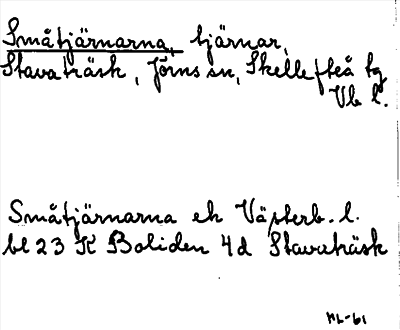 Småtjärnarna, tjärnar,
Stavaträsk, Jörns sn, Skellefteå tg
Vb l.
Småtjärnarna ek Västerb. l.
bl 23 K Boliden 4d Stavaträsk
ML-61